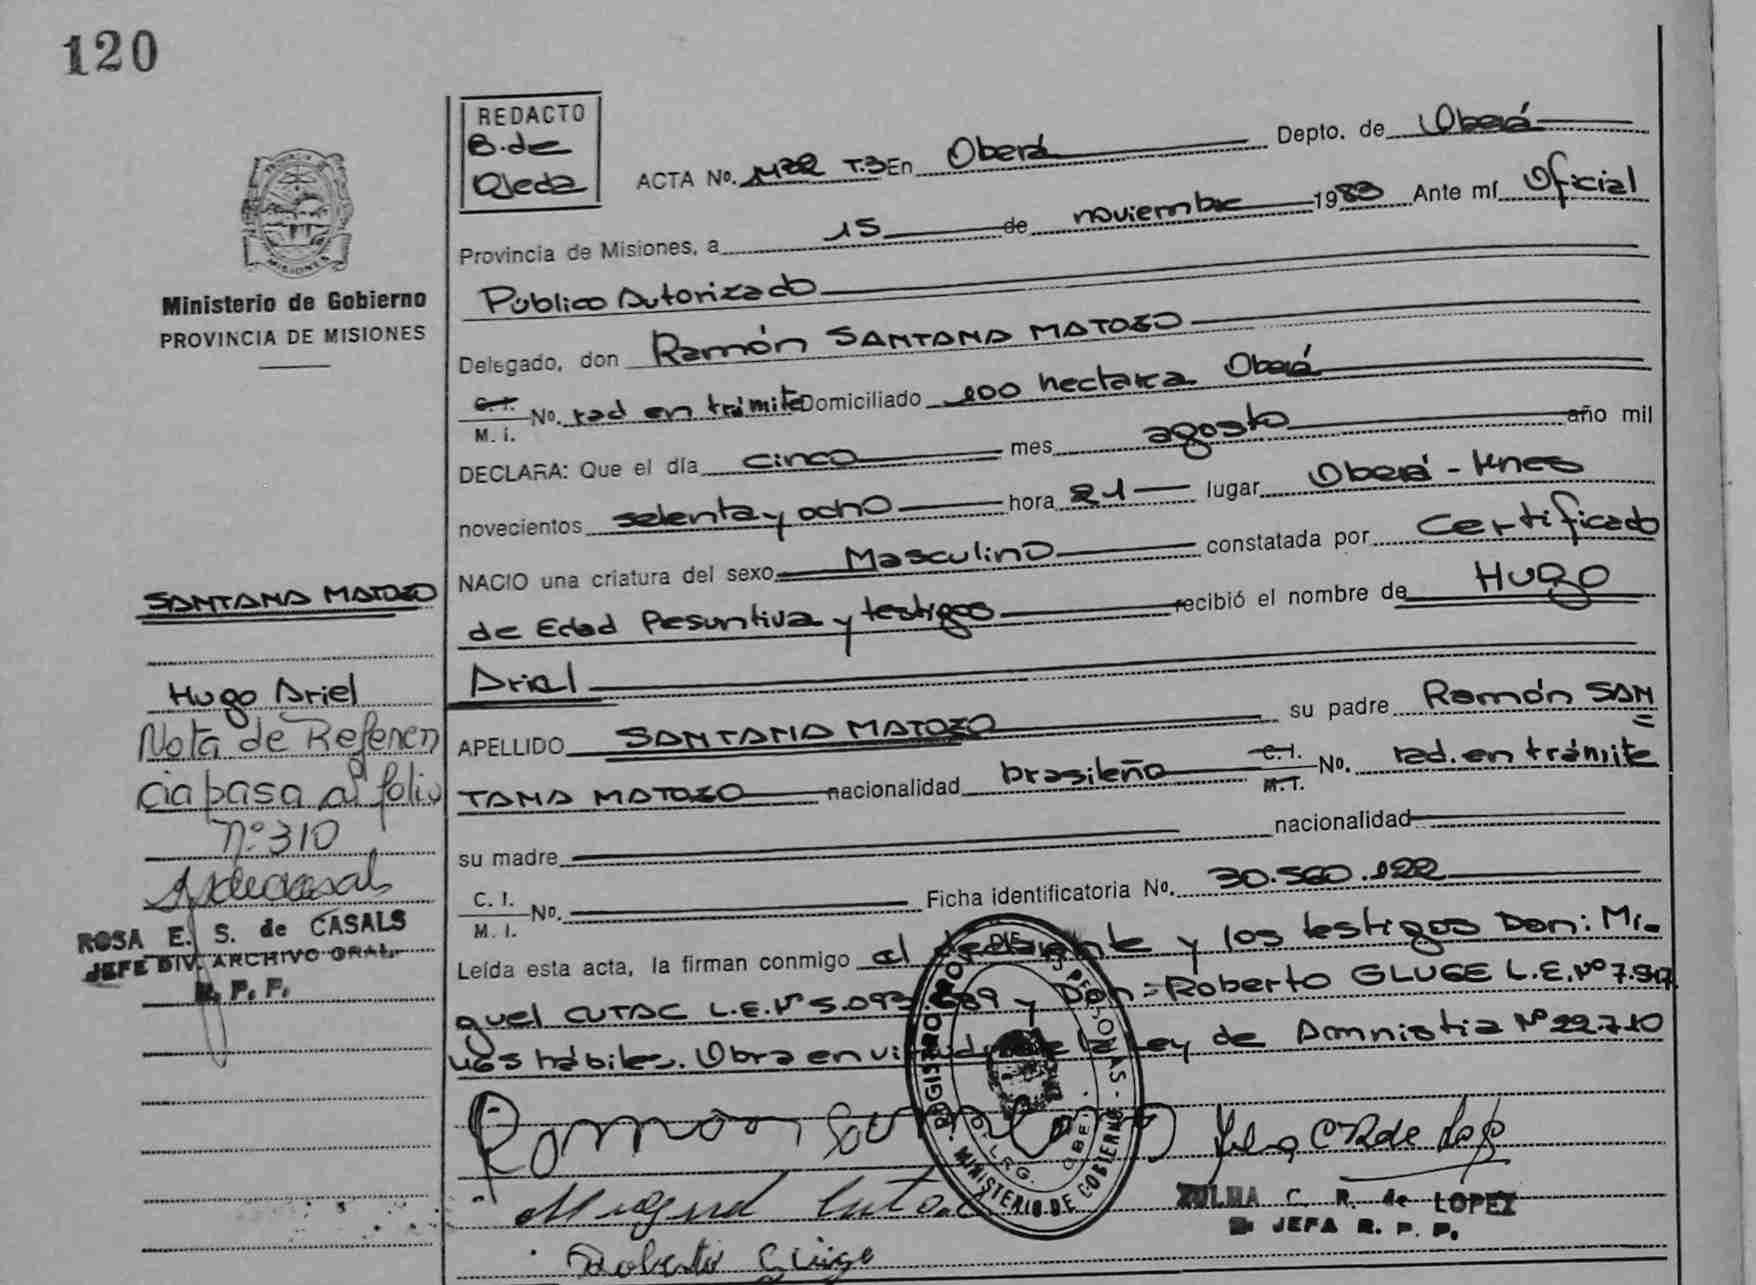 120
REDACTO
B. de
Ojeda
ACTA No. 1422 T.3 En Oberá Depto. de Oberá
Provincia de Misiones, a 15 de noviembre 1983 Ante mí Oficial
Público Autorizado
Delegado, don Ramón SANTANA MATOZO
C. I. No. rad en trámite Domiciliado 100 hectarea Oberá
M. I.
DECLARA: Que el día cinco mes agosto año mil
novecientos setenta y ocho hora 21 lugar Oberá - Mnes
NACIO una criatura del sexo Masculino constatada por Certificado
de Edad Pesuntiva y testigos recibió el nombre de HUGO
Ariel
APELLIDO SANTANA MATOZO su padre Ramón SAN
TANA MATOZO nacionalidad brasileño C. I. No. rad. en trámite
M. I.
su madre nacionalidad
C. I. No. Ficha identificatoria No. 30.560.122
M. I.
Leída esta acta, la firman conmigo el declarante y los testigos Don: Mi-
guel CUTAC L.E.Nº 5.093.689 y Don= Roberto GLUGE L.E.Nº 7.517
hábiles. Obra en virtud de la Ley de Amnistia Nº 22.710
Ramon San
Miguel Cutac
Roberto Gluge
ZULMA C. R. de LOPEZ
JEFA R. P. P.
REGISTRO PROV. DE PERSONAS - MINISTERIO DE GOBIERNO
MISIONES
Ministerio de Gobierno
PROVINCIA DE MISIONES
SANTANA MATOZO
Hugo Ariel
Nota de Referen
cia pasa al folio
Nº 310
ROSA E. S. de CASALS
JEFE DIV. ARCHIVO GRAL.
R. P. P.